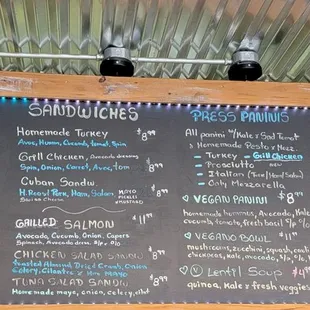 SANDWICHES
Homemade Turkey $8.99
Avoc, Humm, Cucumb, tomat, Spin
Grill Chicken, Avocado dressing $8.99
Spin, Onion, Carrot, Avoc, tom
Cuban Sandw. $8.99
H. Roast Pork, Ham, Salam
MAYO
PICKLES
MUSTARD
Swiss Cheese
GRILLED SALMON $11.99
Avocado, Cucumb, Onion, Capers
Spinach, Avocado dress. S/P
CHICKEN SALAD SANDW $8.99
Toasted Almond, Dried Cranb, Onion
Celery, Cilantro x Hm MAYO
TUNA SALAD SANDW $8.99
Homemade mayo, onion, celery
PRESS PANINIS
All panini w/ Kale x Sad Tomat
x Homemade Pesto x Mozz.
- Turkey - Grill Chicken
- Prosciutto
- Italian
- Only Mozzarella
VEGAN PANINI $8
homemade hummus, Avocado, Kale
cucumb, tomato, fresh basil S/P
VEGANO BOWL $11
mushrooms, zucchini, squash
chickpeas, kale, avocado, S/P
Lentil Soup $4.99
quinoa, Kale x fresh veggies